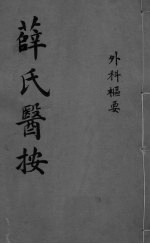 外科樞要
薛氏醫按